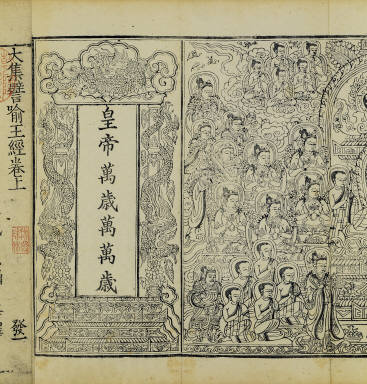 大集譬喻王經卷上
發一
皇帝萬歲萬萬歲